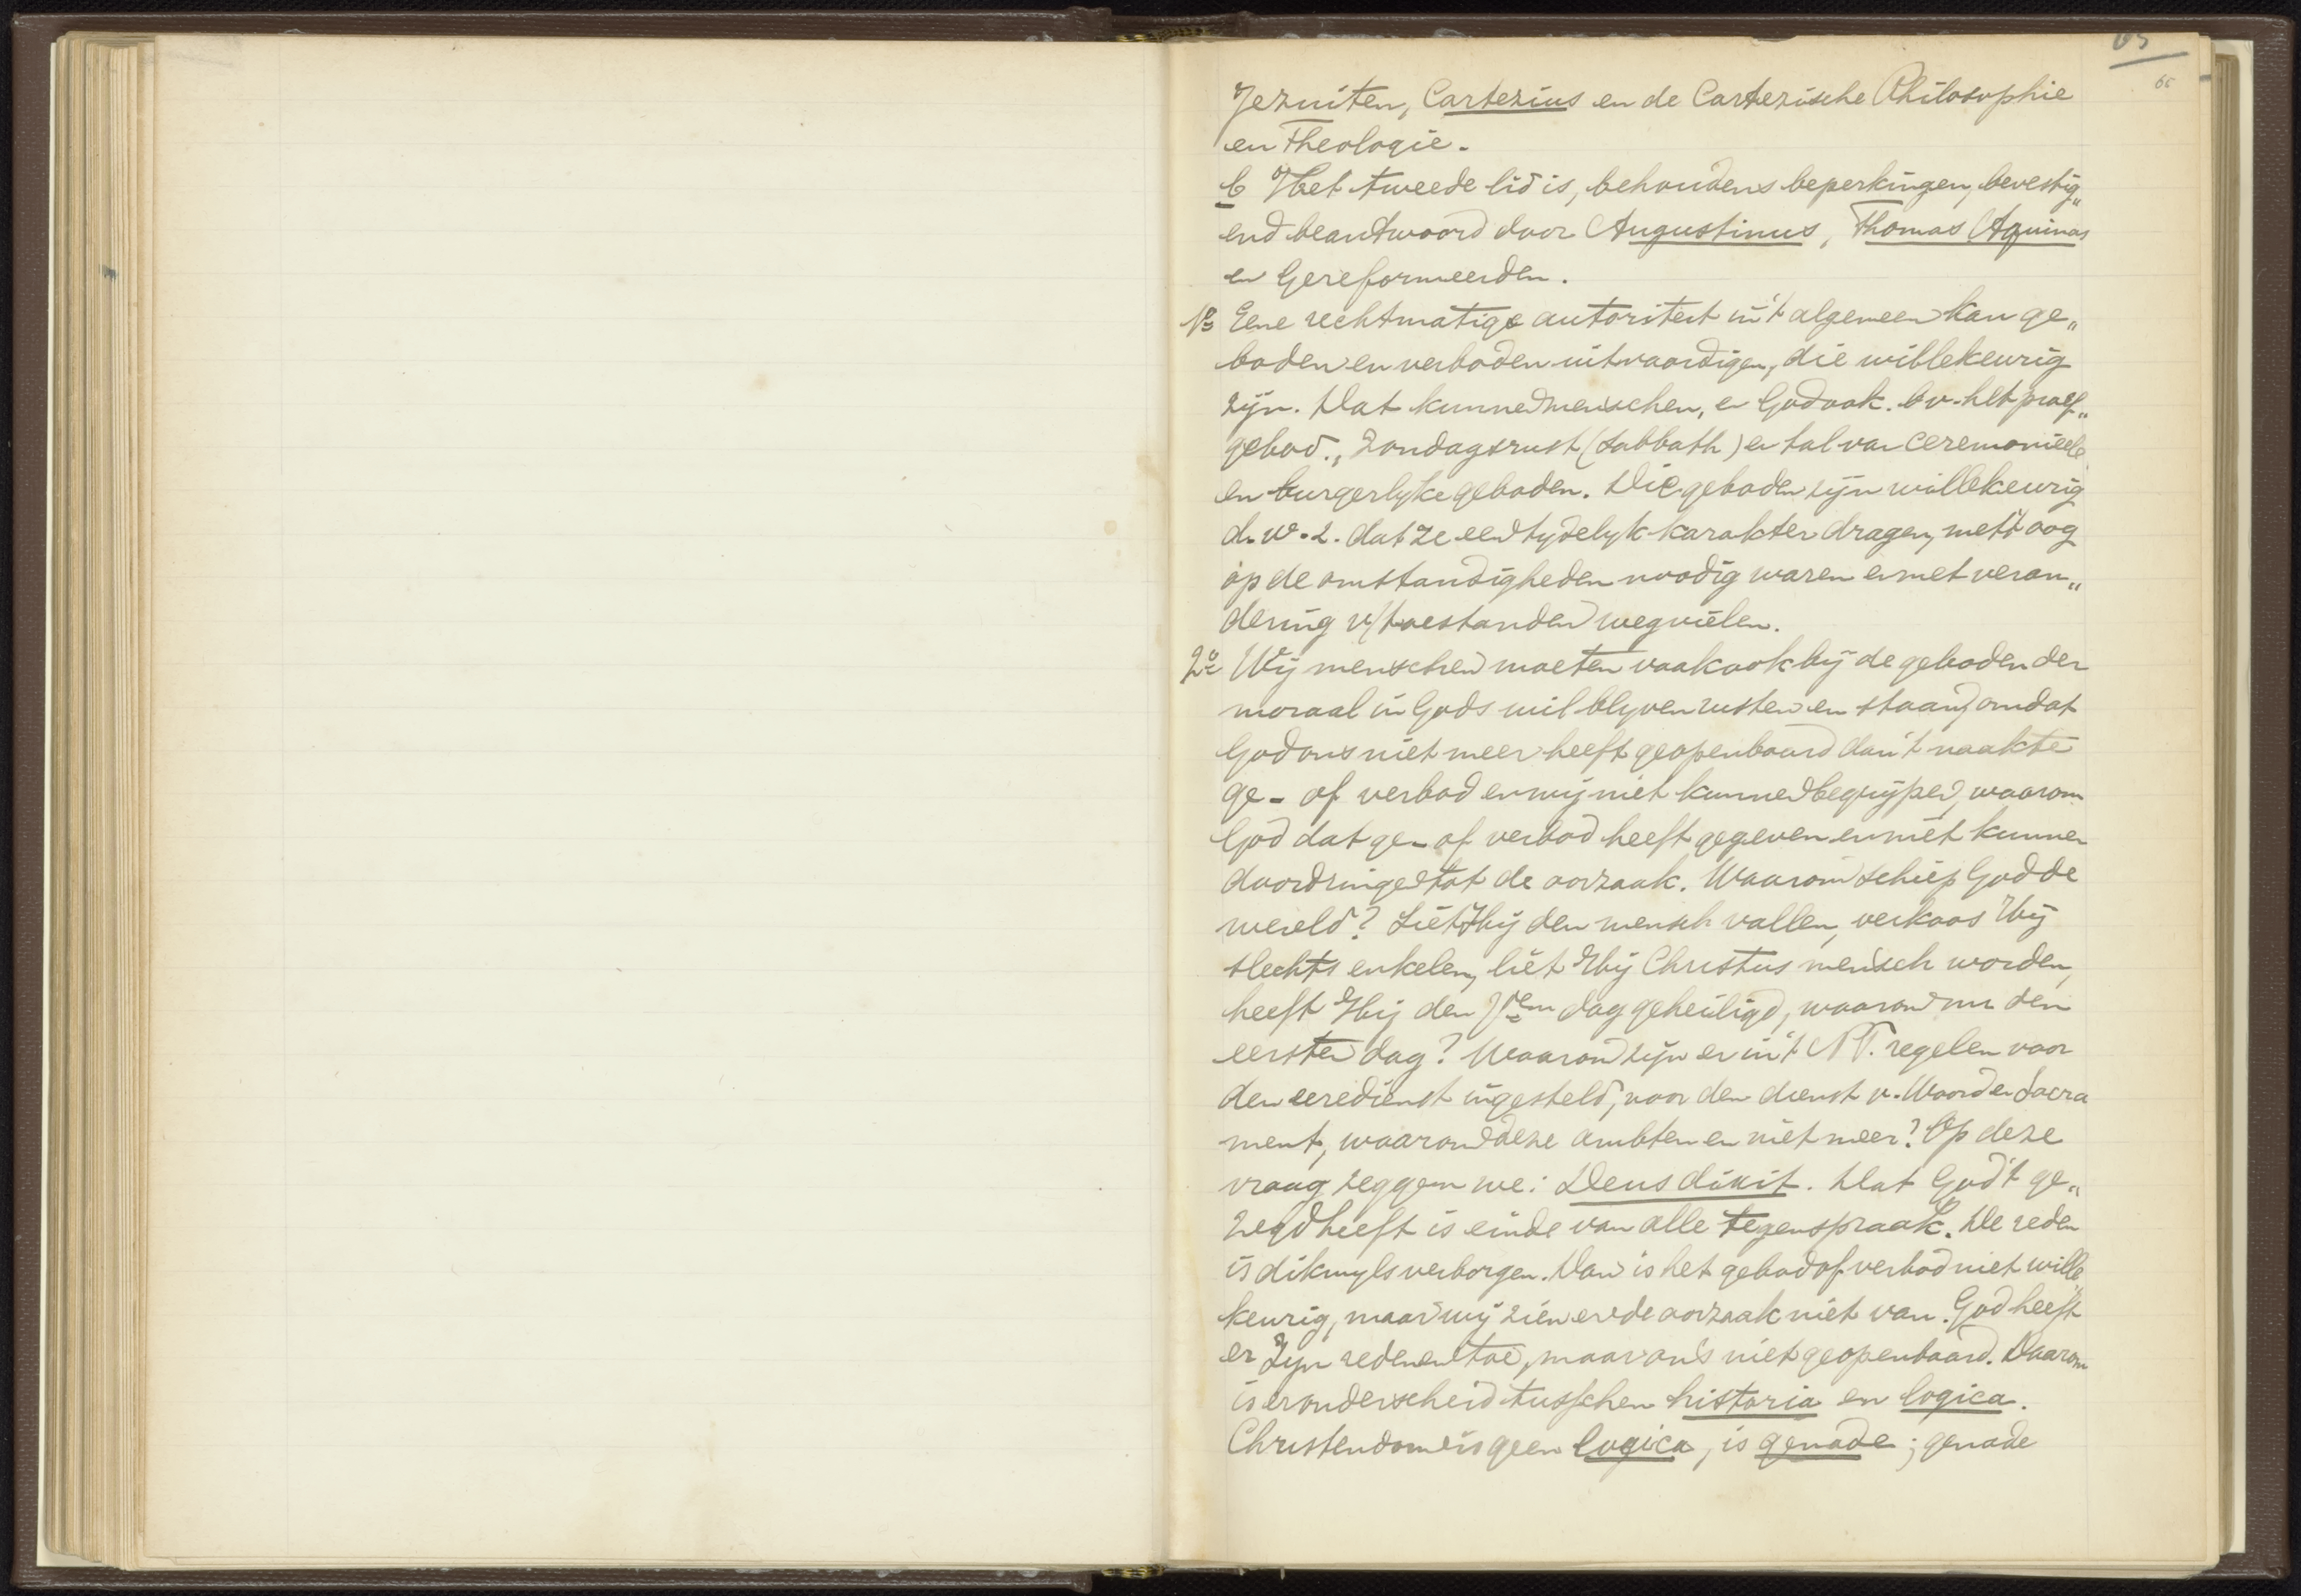 65
65
Jezuiten, Cartezius en de Cartezische Philosophie
en Theologie.
b Het tweede lid is, behoudens beperkingen, bevestig„
end beantwoord door Augustinus, Thomas Aquinas
en Gereformeerden.
1o Eene rechtmatige autoriteit in 't algemeen kan ge„
boden en verboden uitvaardigen, die willekeurig
zijn. Dat kunnen menschen, en God ook. bv. het proef„
gebod., Zondagsrust (Sabbath) en tal van ceremonieele
en burgerlyke geboden. Die geboden zijn willekeurig
d.w.z. dat ze een tydelyk karakter dragen, met 't oog
op de omstandigheden noodig waren en met veran„
dering v/d toestanden wegvielen.
2o Wij menschen moeten vaak ook bij de geboden der
moraal in Gods wil blyven rusten en staan, omdat
God ons niet meer heeft geopenbaard dan 't naakte
ge- of verbod en wij niet kunnen begrijpen, waarom
God dat ge- of verbod heeft gegeven en niet kunnen
doordringen tot de oorzaak. Waarom schiep God de
wereld? Liet Hij den mensch vallen, verkoos Hij
slechts enkelen, liet Hij Christus mensch worden,
heeft Hij den 7den dag geheiligd, waarom nu den
eersten dag? Waarom zijn er in 't N.T. regelen voor
den eeredienst ingesteld, voor den dienst v. Woord en Sacra
ment, waarom deze ambten en niet meer? Op deze
vraag zeggen we: Deus dixit. Dat God 't ge„
zegd heeft is einde van alle tegenspraak. De reden
is dikwyls verborgen. Dan is het gebod of verbod niet wille
keurig, maar wij zien er de oorzaak niet van. God heeft
er Zyn redenen toe, maar ons niet geopenbaard. Daarom
is er onderscheid tusschen historia en logica.
Christendom is geen logica, is genade; genade